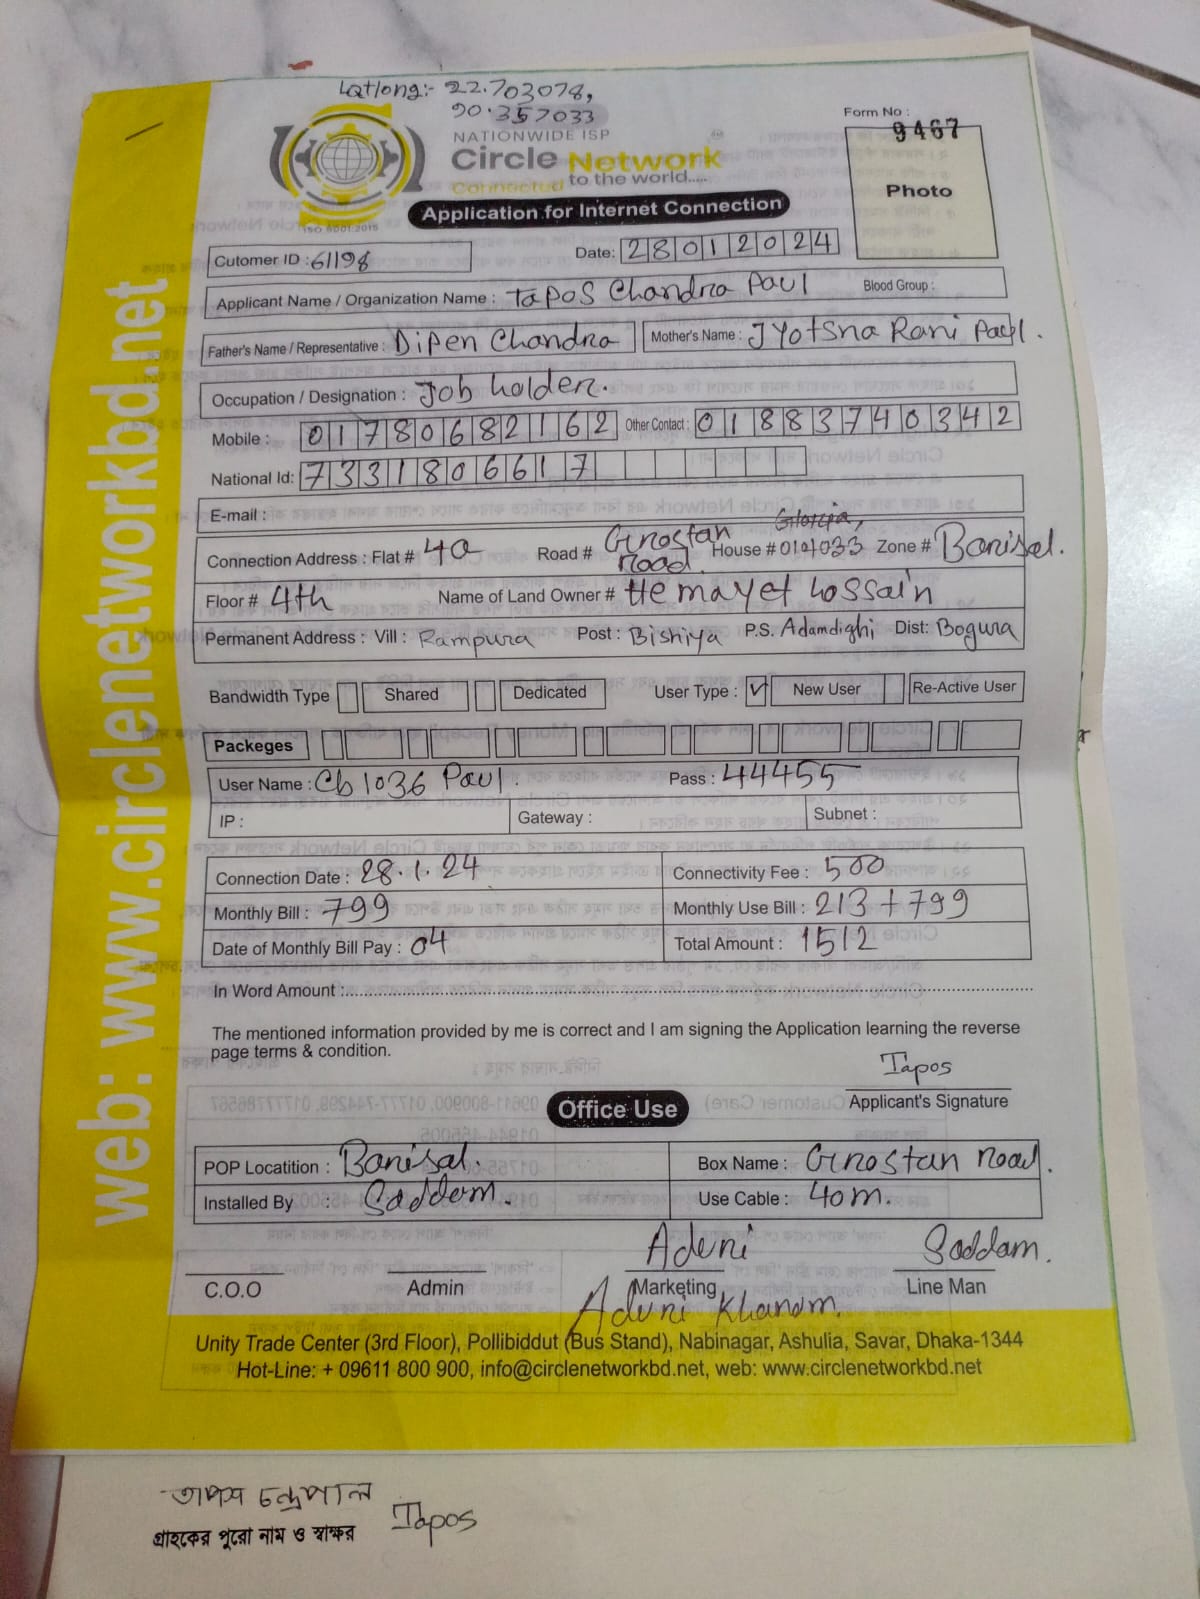 Latlong:- 22.703078,
90.357033
NATIONWIDE ISP
Circle Network
Connected to the world.....
ISO 9001:2015
Form No :
9467
Photo
Application for Internet Connection
Cutomer ID : 61198 Date: 28012024
Applicant Name / Organization Name : Tapos Chandra Paul Blood Group :
Father's Name / Representative : Dipen Chandra Mother's Name : Jyotsna Rani Paul.
Occupation / Designation : Job holder.
Mobile : 01780682162 Other Contact : 01883740342
National Id: 7331806617
E-mail :
Connection Address : Flat # 4a Road # Girostan Road. House # Zone # Barisal.
Floor # 4th Name of Land Owner # Hemayet Hossain
Permanent Address : Vill : Rampura Post : Bishiya P.S. Adamdighi Dist: Bogura
Bandwidth Type Shared Dedicated User Type : ✓ New User Re-Active User
Packeges
User Name : Cb1036 Paul. Pass : 44455
IP : Gateway : Subnet :
Connection Date : 28.1.24 Connectivity Fee : 500
Monthly Bill : 799 Monthly Use Bill : 213 + 799
Date of Monthly Bill Pay : 04 Total Amount : 1512
In Word Amount :
The mentioned information provided by me is correct and I am signing the Application learning the reverse
page terms & condition.
Tapos
Applicant's Signature
Office Use
POP Locatition : Barisal. Box Name : Girostan Road.
Installed By : Saddam. Use Cable : 40m.
Aduri Saddam.
C.O.O Admin Marketing Line Man
Aduri Khanam.
Unity Trade Center (3rd Floor), Pollibiddut (Bus Stand), Nabinagar, Ashulia, Savar, Dhaka-1344
Hot-Line: + 09611 800 900, info@circlenetworkbd.net, web: www.circlenetworkbd.net
web: www.circlenetworkbd.net
তাপস চন্দ্র পাল
গ্রাহকের পুরো নাম ও স্বাক্ষর Tapos